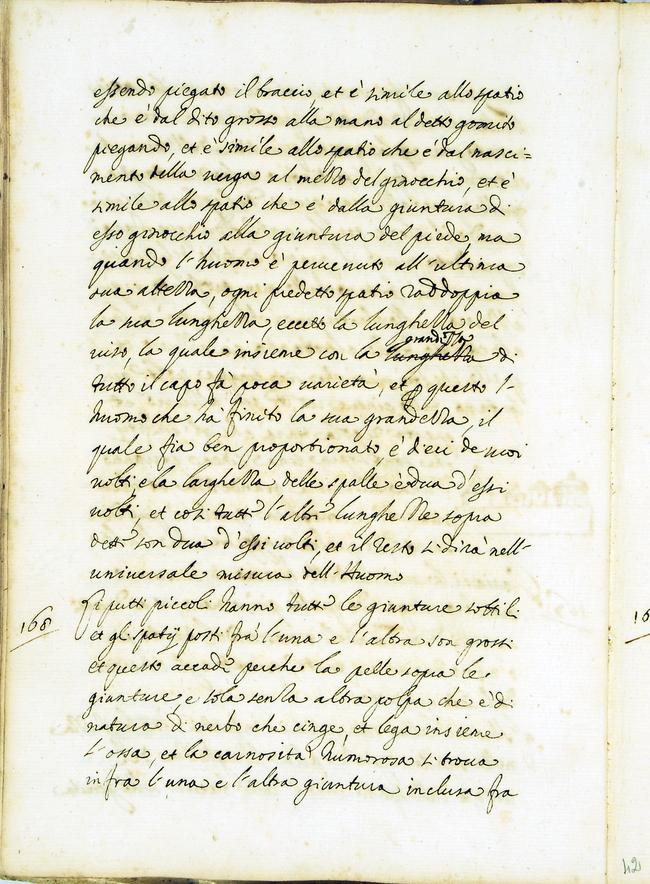 essendo piegato il braccio, et è simile allo spatio
che è dal dito grosso alla mano al detto gomito
piegando, et è simile allo spatio che è dal nasci=
mento della verga al mezzo del ginocchio, et è
simile allo spatio che è dalla giuntura di
esso ginocchio alla giuntura del piede, ma
quando l'huomo è pervenuto all'ultima
sua altezza, ogni predetto spatio raddoppia
la sua lunghezza eccetto la lunghezza del
grandezza
viso, la quale insieme con la lunghezza di
tutto il capo fà poca varietà, et questo l'
huomo che hà finito la sua grandezza, il
quale sia ben proportionato, è dieci de suoi
volti, e la larghezza delle spalle è dua d'essi
volti, et così tutte l'altre lunghezze sopra
dette son dua d'essi volti, et il resto si dirà nell'
universale misura dell'Huomo
168
I putti piccoli hanno tutte le giunture sottili
et gli spatij posti frà l'una e l'altra son grossi
et questo accade perche la pelle sopra le
giunture, e sola senza altra polpa che è di
natura di nerbo che cinge, et lega insieme
l'ossa, et la carnosità humorosa si trova
infra l'una e l'altra giuntura inclusa fra
16
42